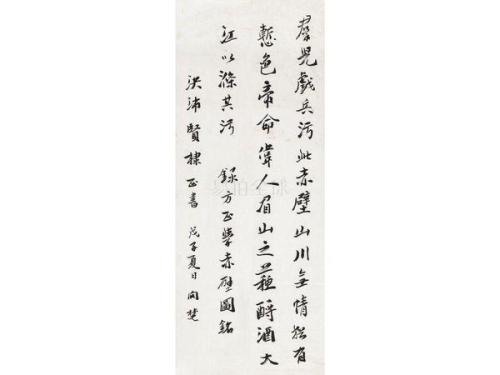 羣兒戲兵污此赤壁山川無情猶有
慙色帝命偉人眉山之蘇酹酒大
江以滌其污 錄方正學赤壁圖銘
洪沛賢棣正書 戊子夏日向楚